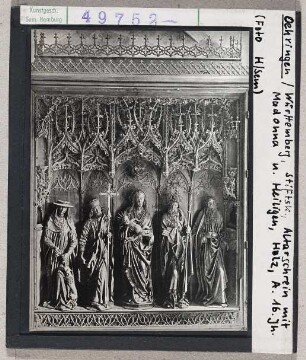 Kunstgesch.
Sem. Hamburg
49752-
Oehringen / Württemberg, Stiftsk., Altarschrein mit
Madonna u. Heiligen, Holz, A. 16. Jh.
(Foto H/Sem)